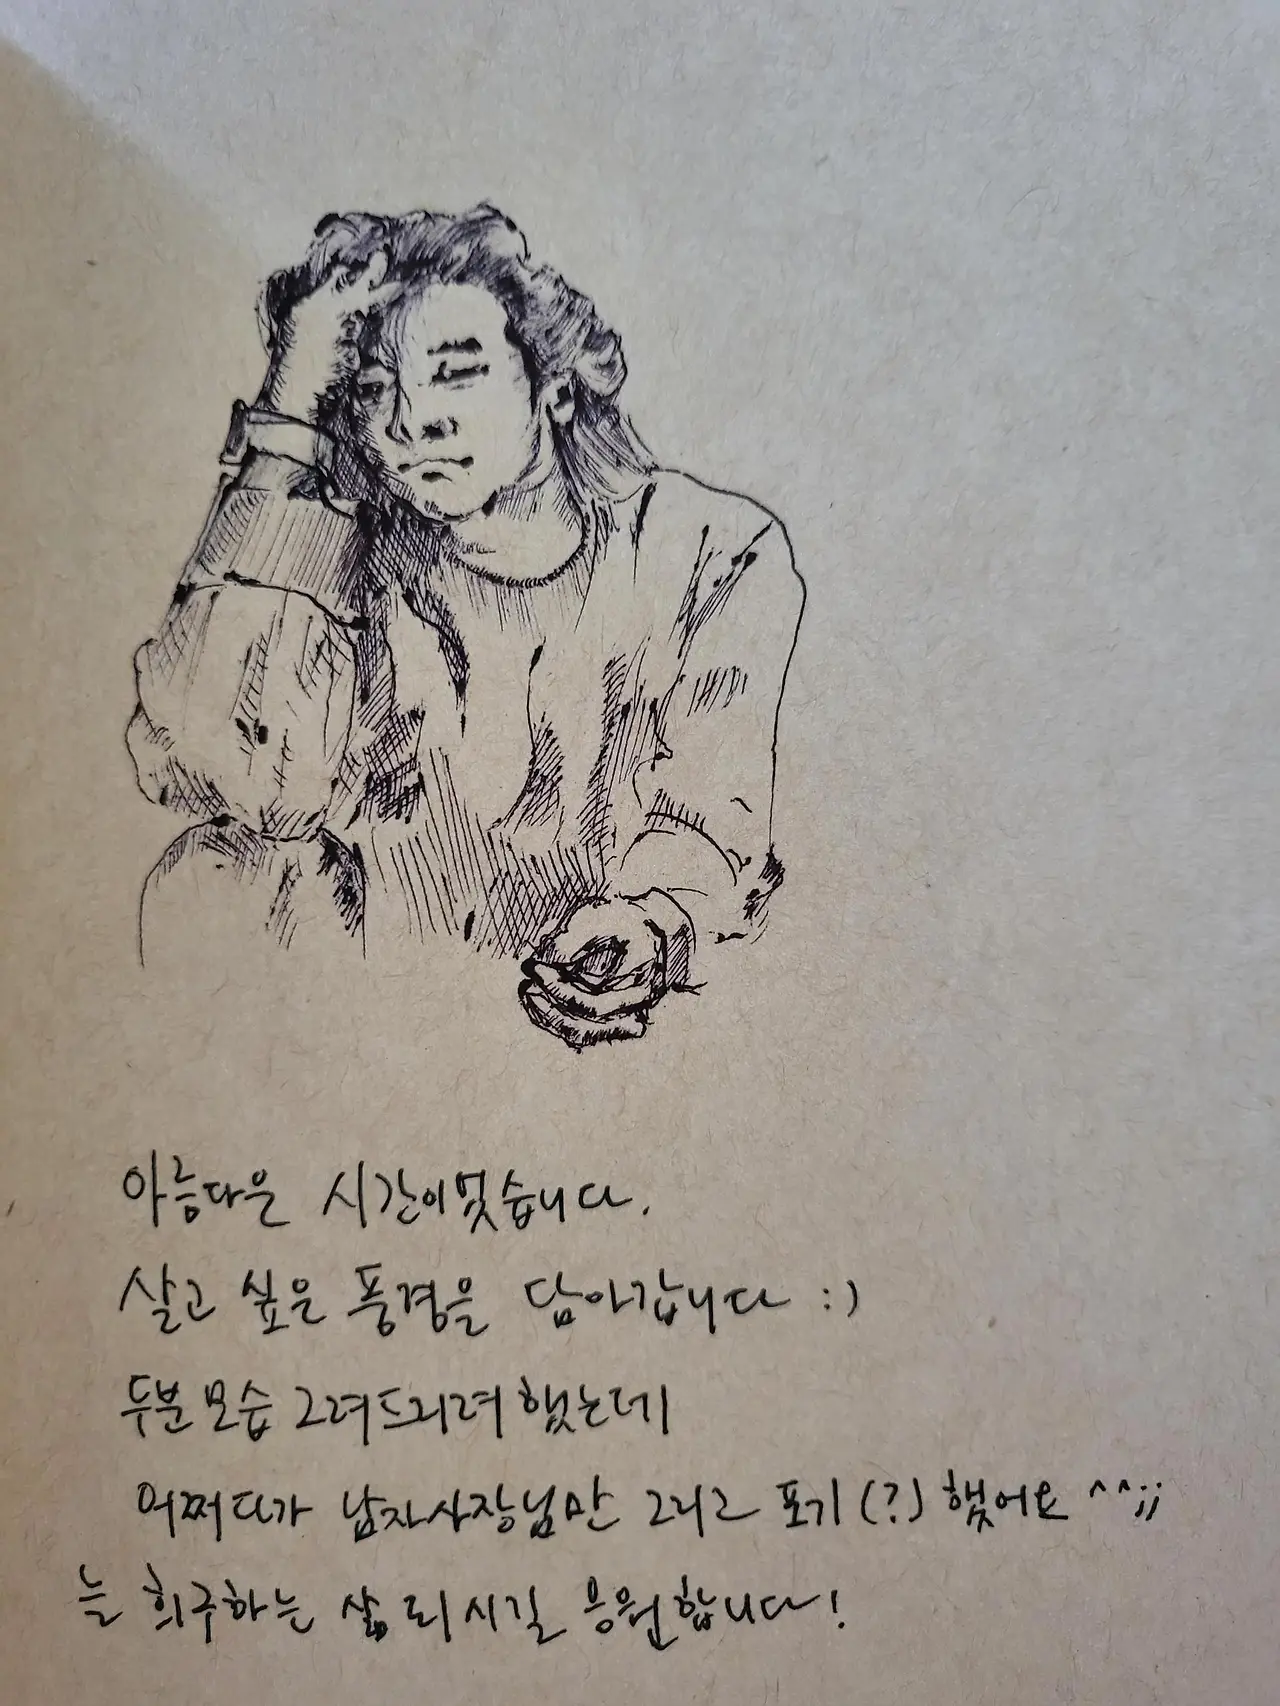 아름다운 시간이었습니다.
살고 싶은 풍경을 담아갑니다 :)
두분 모습 그려드리려 했는데
어쩌다가 남자사장님만 그리고 포기(?) 했어요 ^^;;
늘 희구하는 삶 되시길 응원합니다!